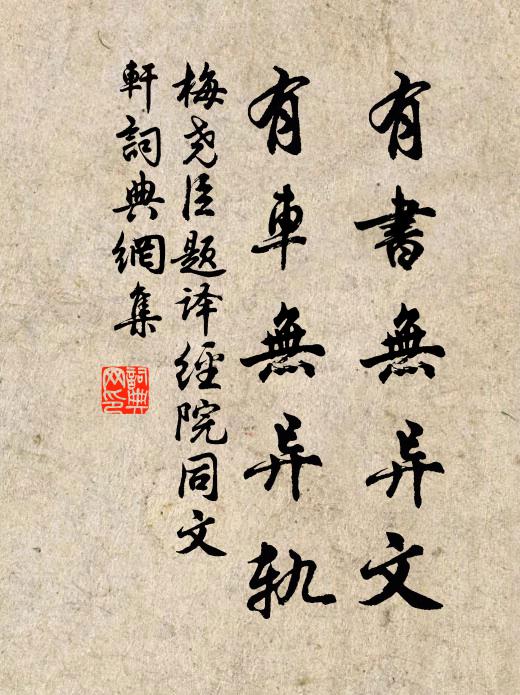 有書無异文
有車無异轨
梅尧臣题译經院同文
軒詞典網集
詞典
网印